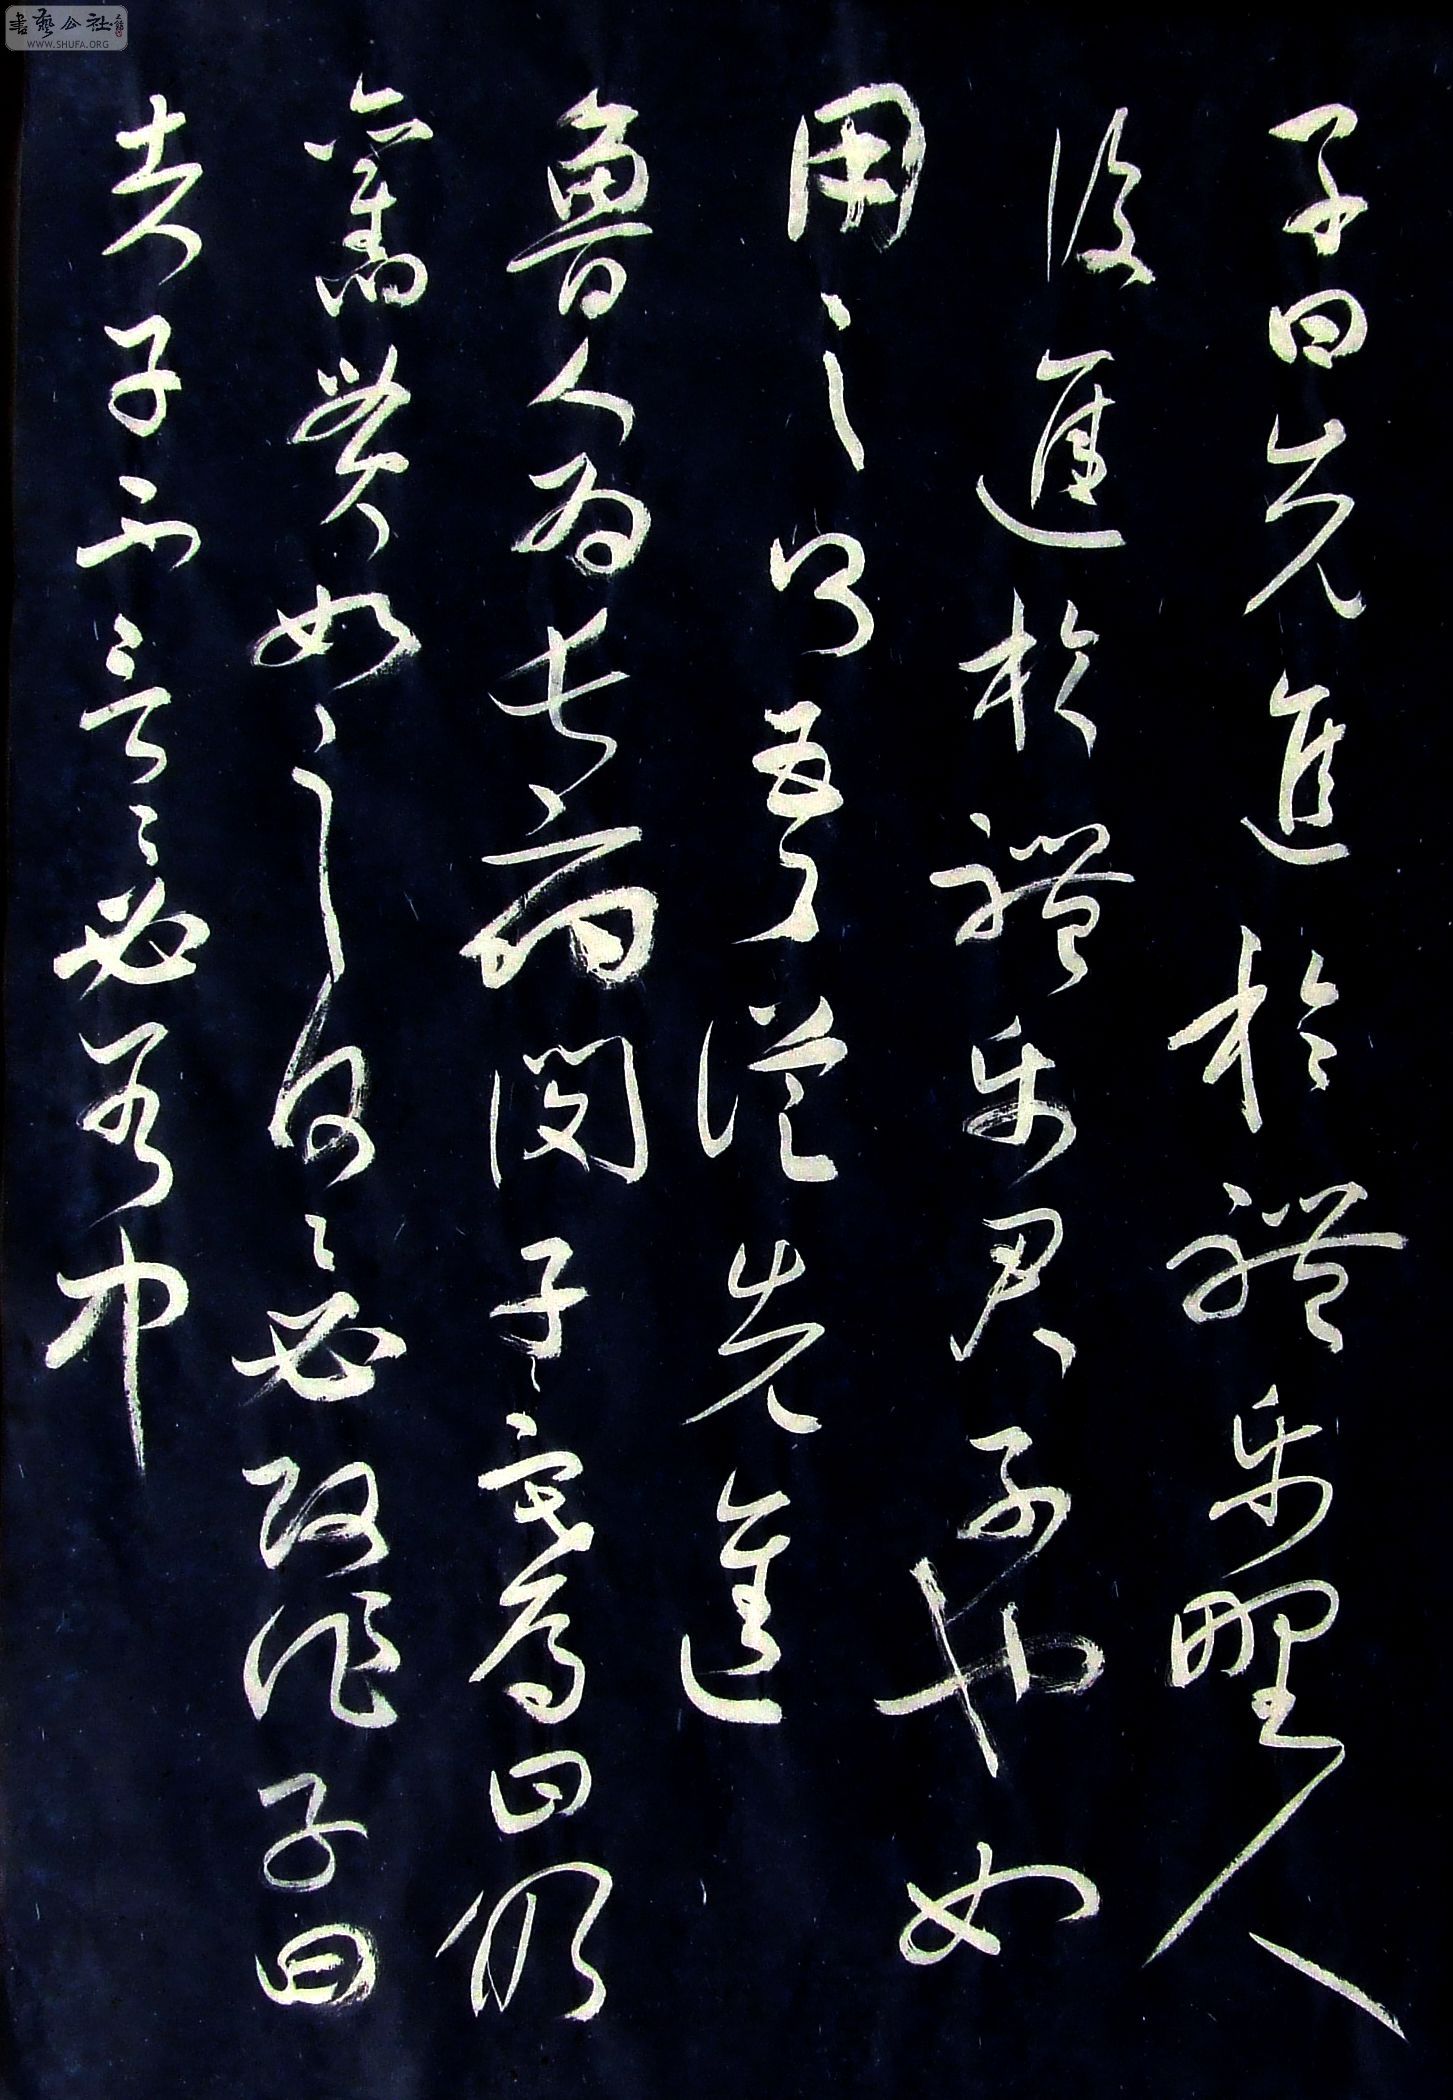 子曰先進於禮樂野人
後進於禮樂君子也如
用之則吾從先進
魯人為長府閔子騫曰仍
舊貫如之何何必改作子曰
夫子不言言必有中
書藝公社
WWW.SHUFA.ORG